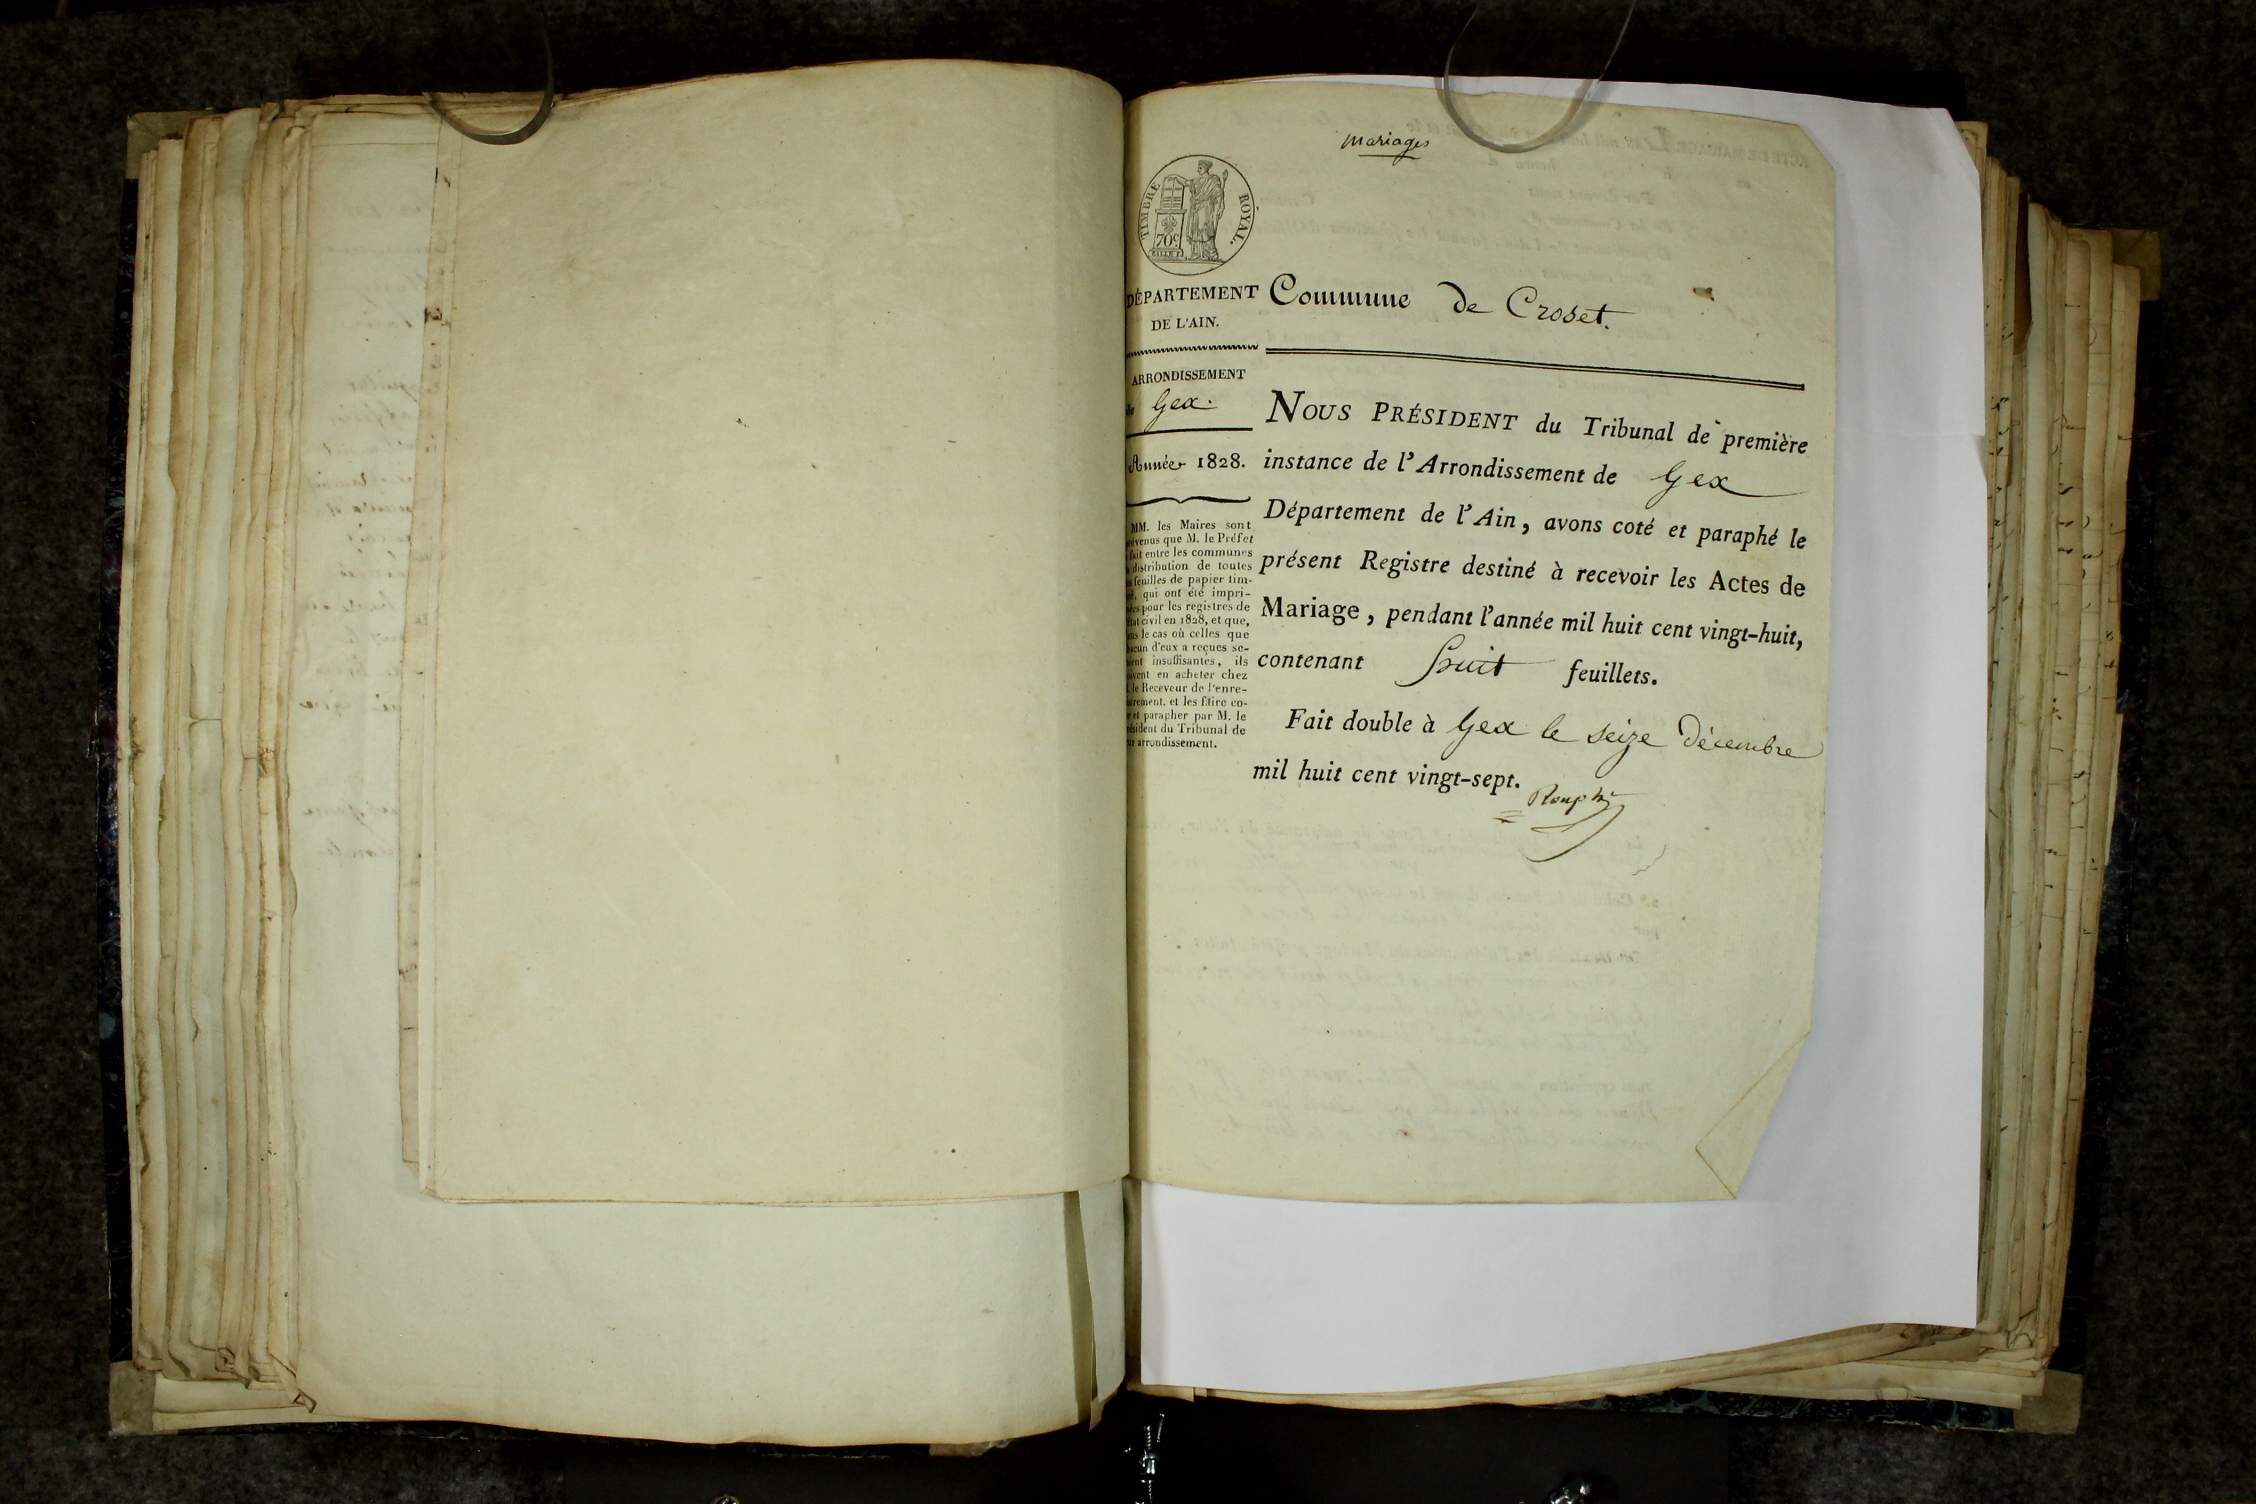 mariages
TIMBRE ROYAL.
70c
DÉPARTEMENT
DE L'AIN.
Commune de Croset.
ARRONDISSEMENT
de Gex.
Année 1828.
MM. les Maires sont
prévenus que M. le Préfet
fait entre les communes
distribution de toutes
feuilles de papier tim-
qui ont été impri-
pour les registres de
civil en 1828, et que,
le cas où celles que
d'eux a reçues se-
insuffisantes, ils
en acheter chez
le Receveur de l'enre-
et les faire co-
et parapher par M. le
Président du Tribunal de
arrondissement.
NOUS PRÉSIDENT du Tribunal de première
instance de l'Arrondissement de Gex
Département de l'Ain, avons coté et paraphé le
présent Registre destiné à recevoir les Actes de
Mariage, pendant l'année mil huit cent vingt-huit,
contenant huit feuillets.
Fait double à Gex le seize Décembre
mil huit cent vingt-sept.